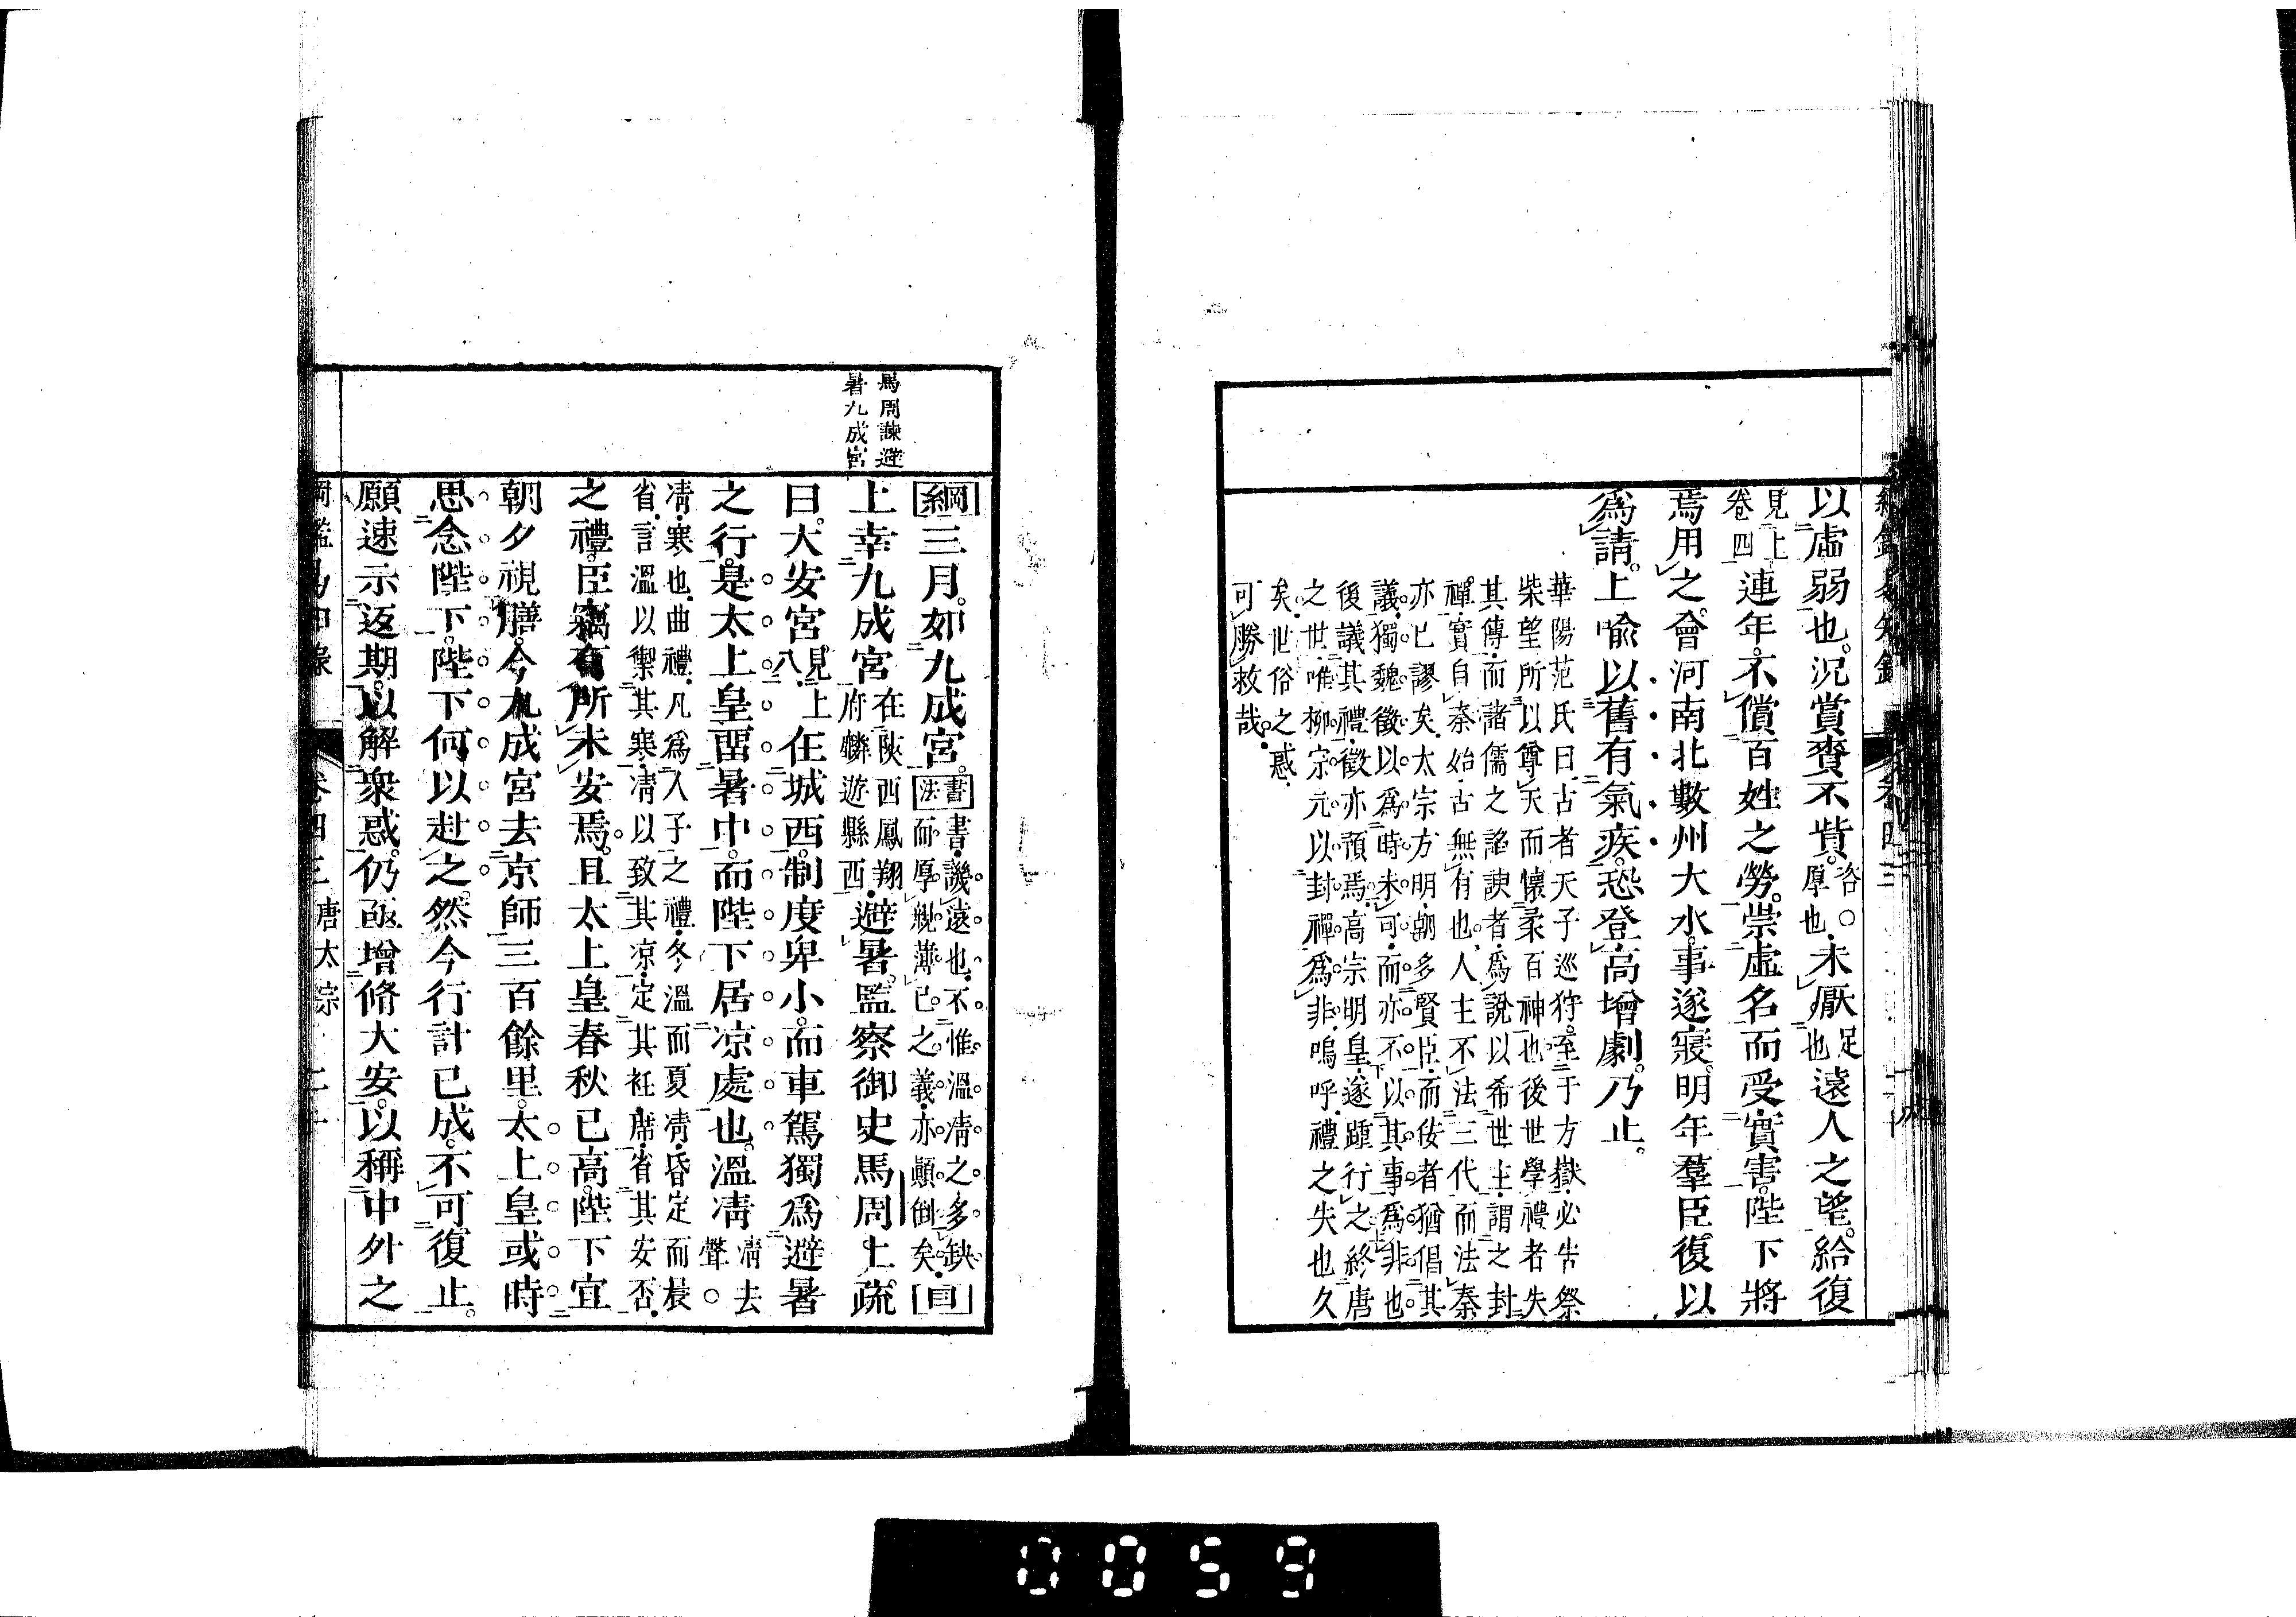 以虛弱也。況賞賚不貲。咨○厚也。未厭足也遠人之望。給復
見上卷四連年。不償百姓之勞。崇虛名而受實害。陛下將
焉用之。會河南北數州大水。事遂寢。明年羣臣復以
爲請。上喩以舊有氣疾。恐登高增劇。乃止。
華陽范氏曰。古者天子巡狩。至于方嶽。必告祭
柴望。所以尊天而懷柔百神也。後世學禮者失
其傳。而諸儒之諂諛者。爲說以希世主。謂之封
禪。實自秦始。古無有也。人主不法三代而法秦
亦已謬矣。太宗方明。朝多賢臣。而佞者猶倡其
議。獨魏徵以爲時未可。而亦不以其事爲非也。
後議其禮。徵亦預焉。高宗明皇。遂踵行之。終唐
之世。唯柳宗元以封禪爲非。嗚呼。禮之失也久
矣。世俗之惑。
可勝救哉。
馬周諫避
暑九成宮
綱三月。如九成宮。書法書。譏遠也。不惟溫凊之多缺。而厚親薄己之義。亦顚倒矣。目
上幸九成宮在陝西鳳翔府麟遊縣西。避暑。監察御史馬周上疏
曰。大安宮見上八。在城西。制度卑小。而車駕獨爲避暑
之行。是太上皇畱暑中。而陛下居凉處也。溫凊凊去聲。○
凊。寒也。曲禮。凡爲人子之禮。冬溫而夏凊。昏定而晨
省。言溫以禦其寒。凊以致其凉。定其衽席。省其安否。
之禮。臣竊有所未安焉。且太上皇春秋已高。陛下宜
朝夕視膳。今九成宮去京師三百餘里。太上皇或時
思念陛下。陛下何以赴之。然今行計已成。不可復止。
願速示返期。以解衆惑。仍亟增脩大安。以稱中外之
卷四三 唐太宗
0059